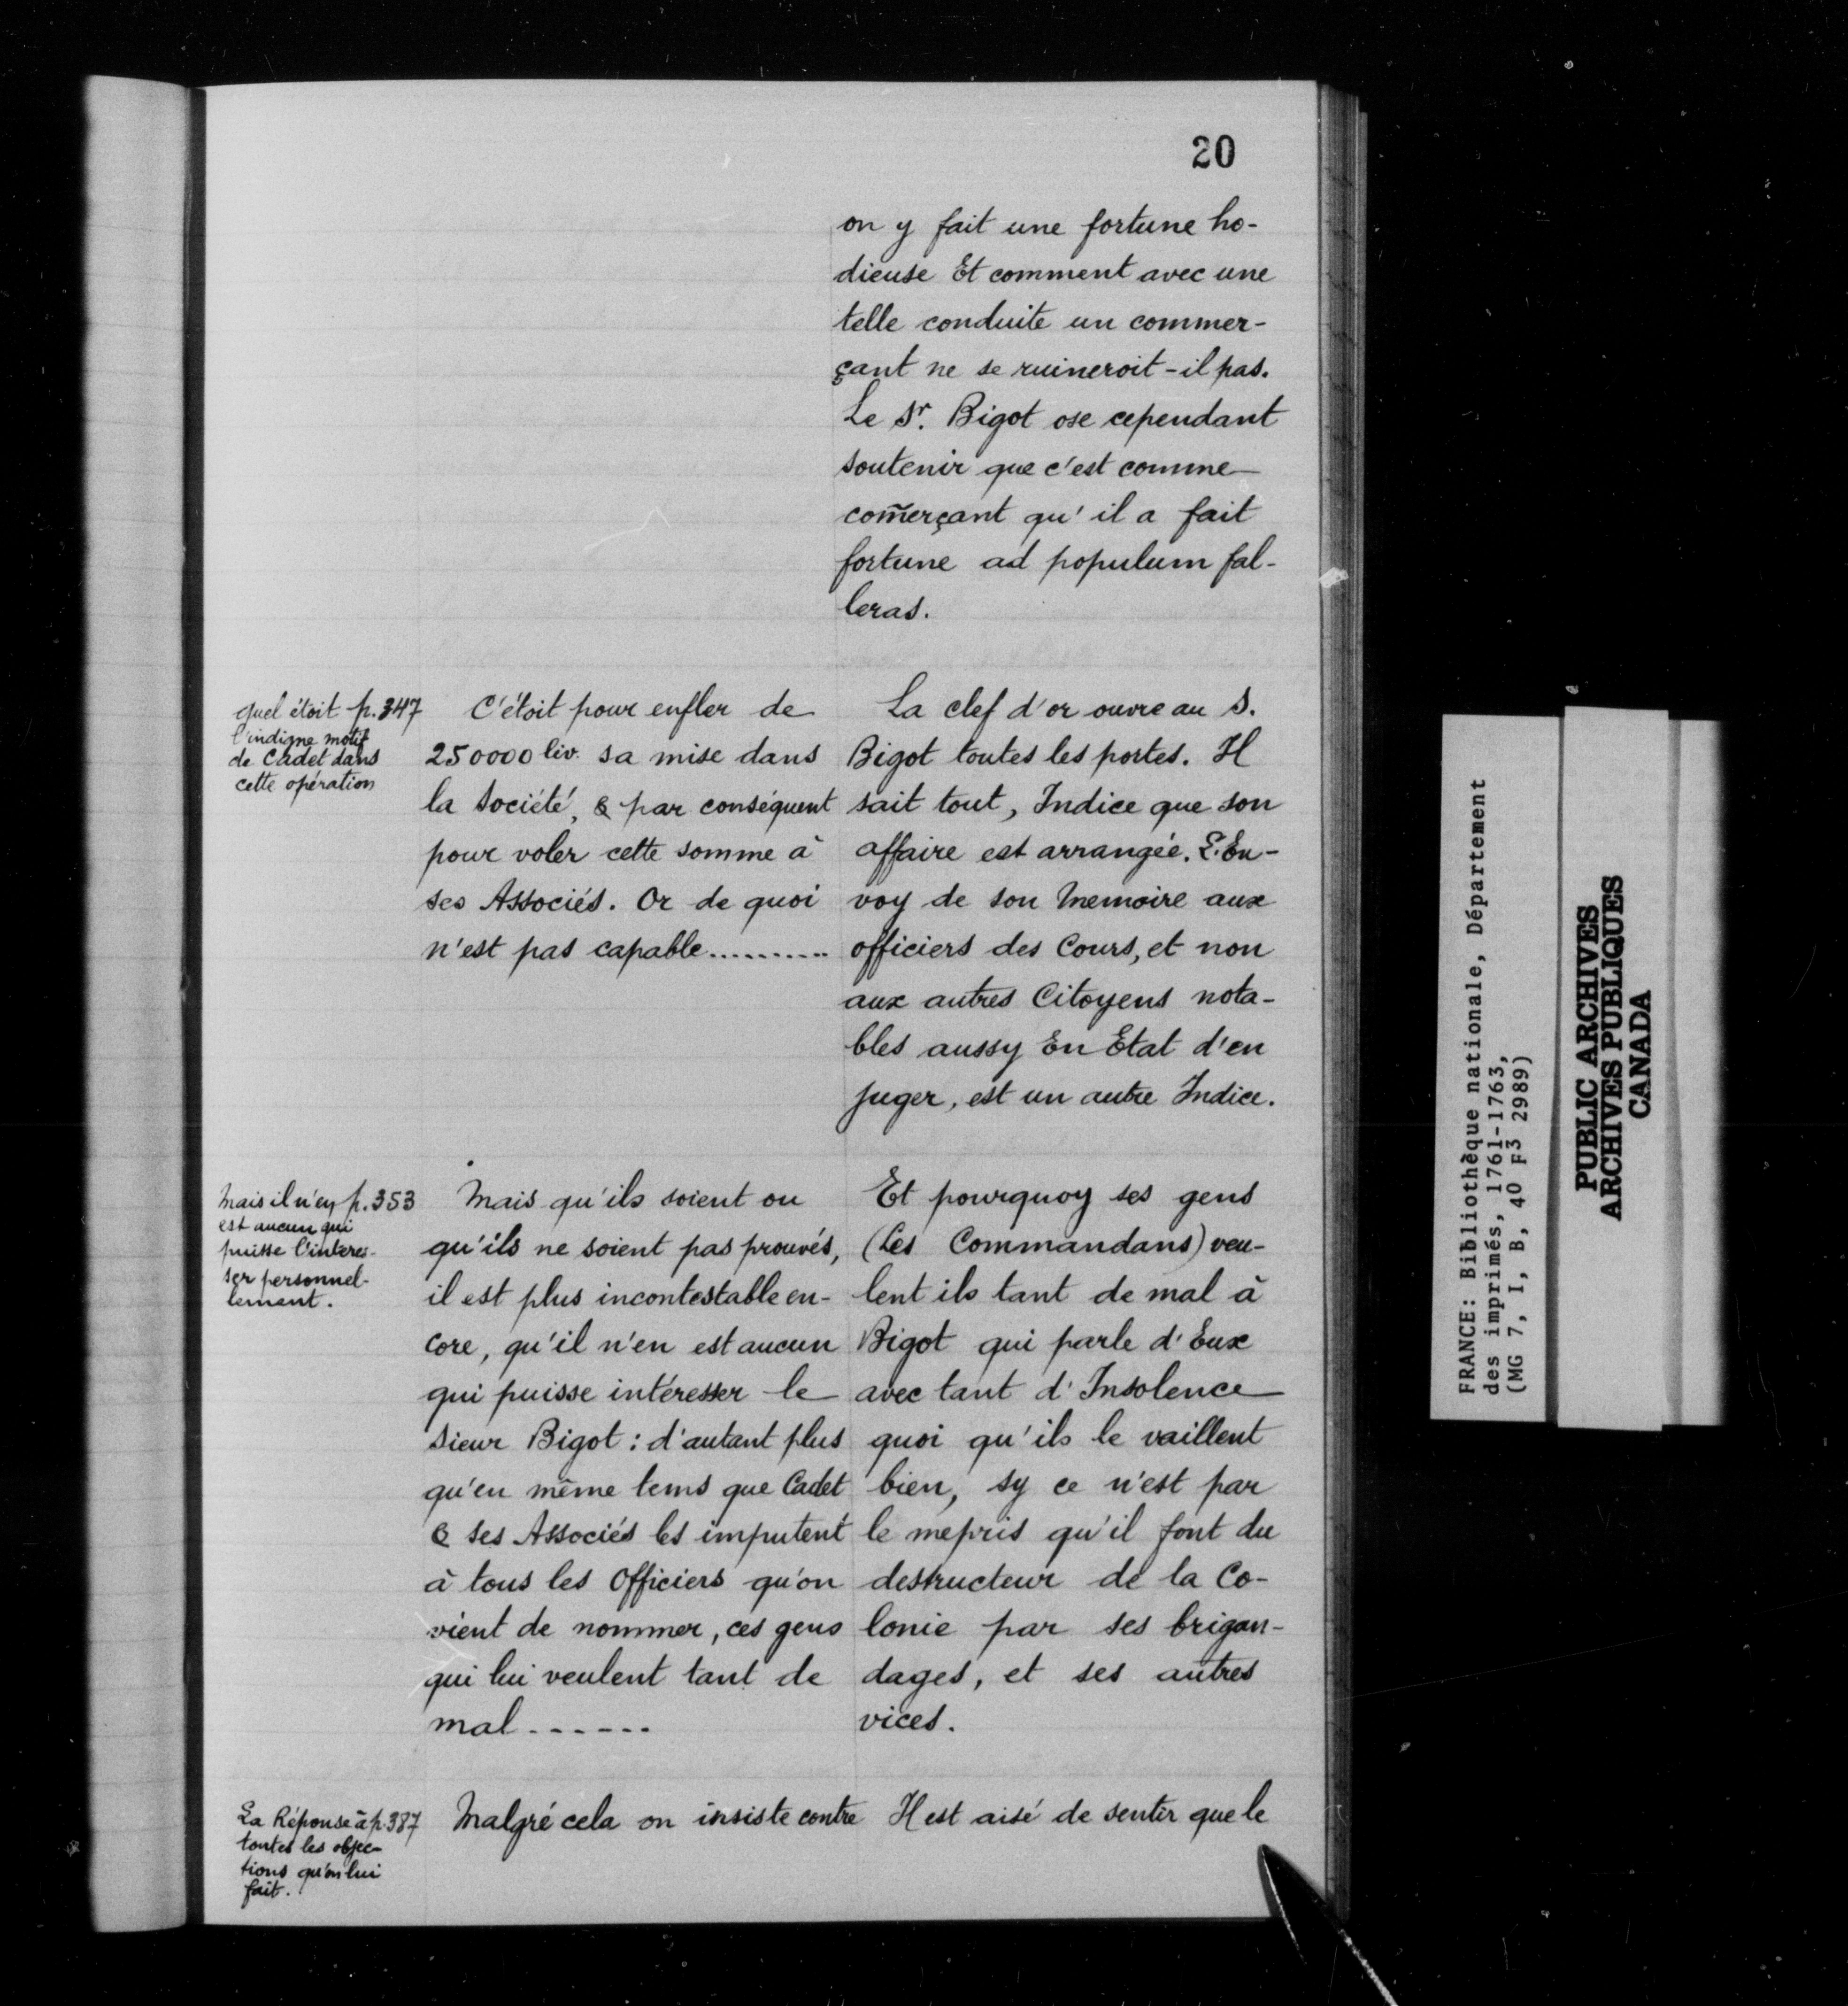 20
on y fait une fortune ho-
dieuse Et comment avec une
telle conduite un commer-
çant ne se ruineroit-il pas.
Le Sr. Bigot ose cependant
soutenir que c'est comme
com̃erçant qu'il a fait
fortune ad populum fal-
leras.
quel étoit p. 347
l'indigne motif
de Cadet dans
cette opération
C'étoit pour enfler de
250000 liv. sa mise dans
la Société, & par conséquent
pour voler cette somme à
ses Associés. Or de quoi
n'est pas capable..........
La clef d'or ouvre au S.
Bigot toutes les portes. Il
sait tout, Indice que son
affaire est arrangée. L'En-
voy de son Memoire aux
officiers des Cours, et non
aux autres Citoyens nota-
bles aussy En Etat d'en
juger, est un autre Indice.
Mais il n'en p. 353
est aucun qui
puisse l'interes-
ser personnel-
lement.
Mais qu'ils soient ou
qu'ils ne soient pas prouvés,
il est plus incontestable en-
core, qu'il n'en est aucun
qui puisse intéresser le
Sieur Bigot : d'autant plus
qu'en même tems que Cadet
& ses Associés les imputent
à tous les Officiers qu'on
vient de nommer, ces gens
qui lui veulent tant de
mal------
Et pourquoy ses gens
(Les Commandans) veu-
lent ils tant de mal à
Bigot qui parle d'Eux
avec tant d'Insolence
quoi qu'ils le vaillent
bien, sy ce n'est par
le mepris qu'il font du
destructeur de la Co-
lonie par ses brigan-
dages, et ses autres
vices.
La Réponse à p. 387
toutes les objec-
tions qu'on lui
fait.
Malgré cela on insiste contre
Il est aisé de sentir que le
FRANCE: Bibliothèque nationale, Département
des imprimés, 1761-1763,
(MG 7, I, B, 40 F3 2989)
PUBLIC ARCHIVES
ARCHIVES PUBLIQUES
CANADA